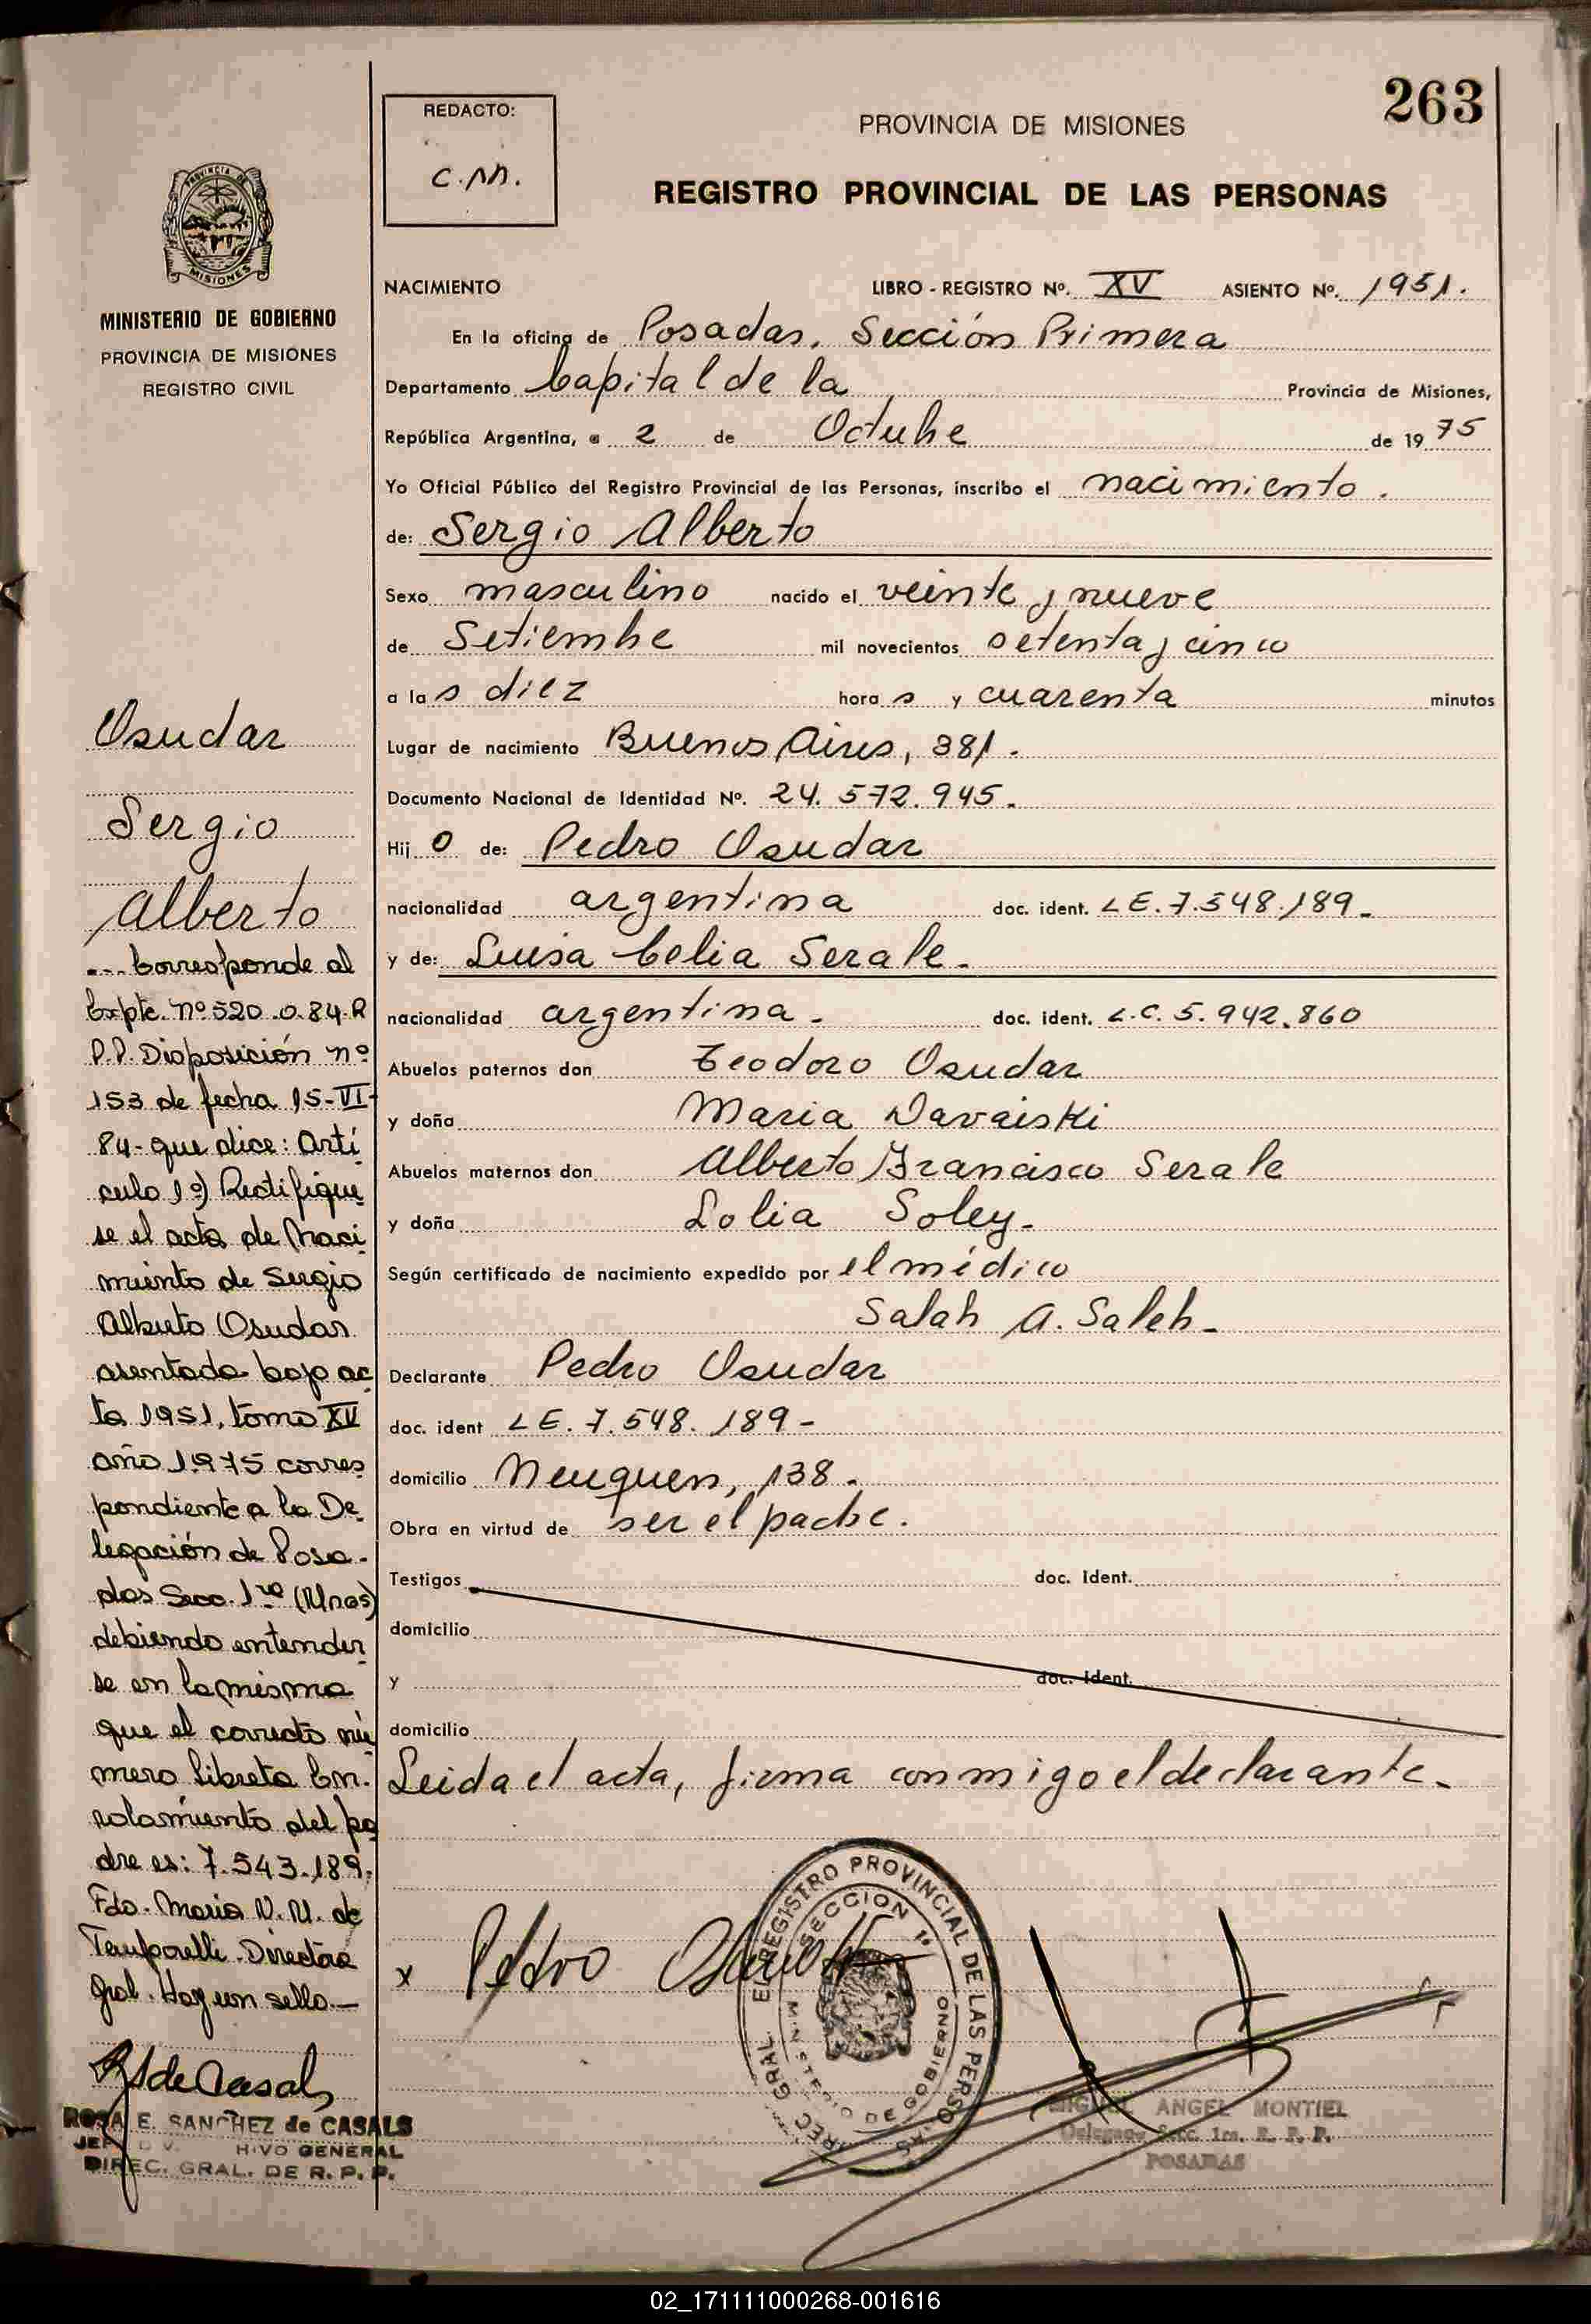 263
REDACTO:
C.M.
PROVINCIA DE MISIONES
REGISTRO PROVINCIAL DE LAS PERSONAS
PROVINCIA DE
MISIONES
MINISTERIO DE GOBIERNO
PROVINCIA DE MISIONES
REGISTRO CIVIL
NACIMIENTO LIBRO - REGISTRO Nº. XV ASIENTO Nº. 1951.
En la oficina de Posadas. Sección Primera
Departamento Capital de la Provincia de Misiones,
República Argentina, a 2 de Octubre de 1975
Yo Oficial Público del Registro Provincial de las Personas, inscribo el nacimiento.
de: Sergio Alberto
Sexo masculino nacido el veinte y nueve
de Setiembre mil novecientos setenta y cinco
a las diez horas y cuarenta minutos
Lugar de nacimiento Buenos Aires, 381.
Documento Nacional de Identidad Nº. 24.572.945.
Hijo de: Pedro Osudar
nacionalidad argentina doc. ident. LE.7.548.189-
y de: Luisa Celia Serale.
nacionalidad argentina. doc. ident. L.C. 5.942.860
Abuelos paternos don Teodoro Osudar
y doña Maria
Abuelos maternos don Alberto Francisco Serale
y doña Lolia Soley.
Según certificado de nacimiento expedido por el médico
Salah A. Saleh.
Declarante Pedro Osudar
doc. ident LE.7.548.189-
domicilio Neuquen, 138.
Obra en virtud de ser el padre.
Testigos doc. Ident.
domicilio
y doc. Ident.
domicilio
Leida el acta, firma conmigo el declarante.
x Pedro Osudar
DIREC. GRAL. EL REGISTRO PROVINCIAL DE LAS PERSONAS
SECCION 1ª
MINISTERIO DE GOBIERNO
MIGUEL ANGEL MONTIEL
Delegado Secc. 1ra. R. P. P.
POSADAS
Osudar
Sergio
Alberto
... Corresponde al
Expte. nº 520.0.84.R
P.P. Disposición nº
153 de fecha 15-VI-
84- que dice: Artí
culo 1º) Rectifíque
se el acta de Naci
miento de Sergio
Alberto Osudar
asentada bajo ac
ta 1951, tomo XV
año 1.975 corres
pondiente a la De
legación de Posa-
das Secc. 1ra (Mnes)
debiendo entender
se en la misma
que el correcto nú
mero Libreta En.
rolamiento del pa
dre es: 7.543.189.
Fdo. Maria N. U. de
Temporelli. Directora
Gral. Hay un sello.-
R S de Casals
ROSA E. SANCHEZ de CASALS
HIVO GENERAL
DIREC. GRAL. DE R. P. P.
02_171111000268-001616